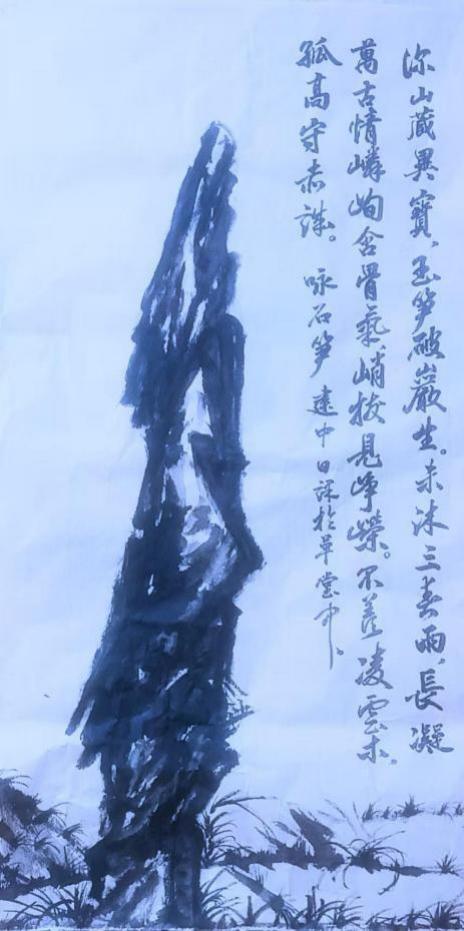 深山藏異寶、玉笋破巖生。未沐三春雨、長凝
萬古情嶙峋含骨氣、峭拔見崢嶸。不羨凌雲木、
孤高守赤誠。 咏石笋 建中日課於草堂中、